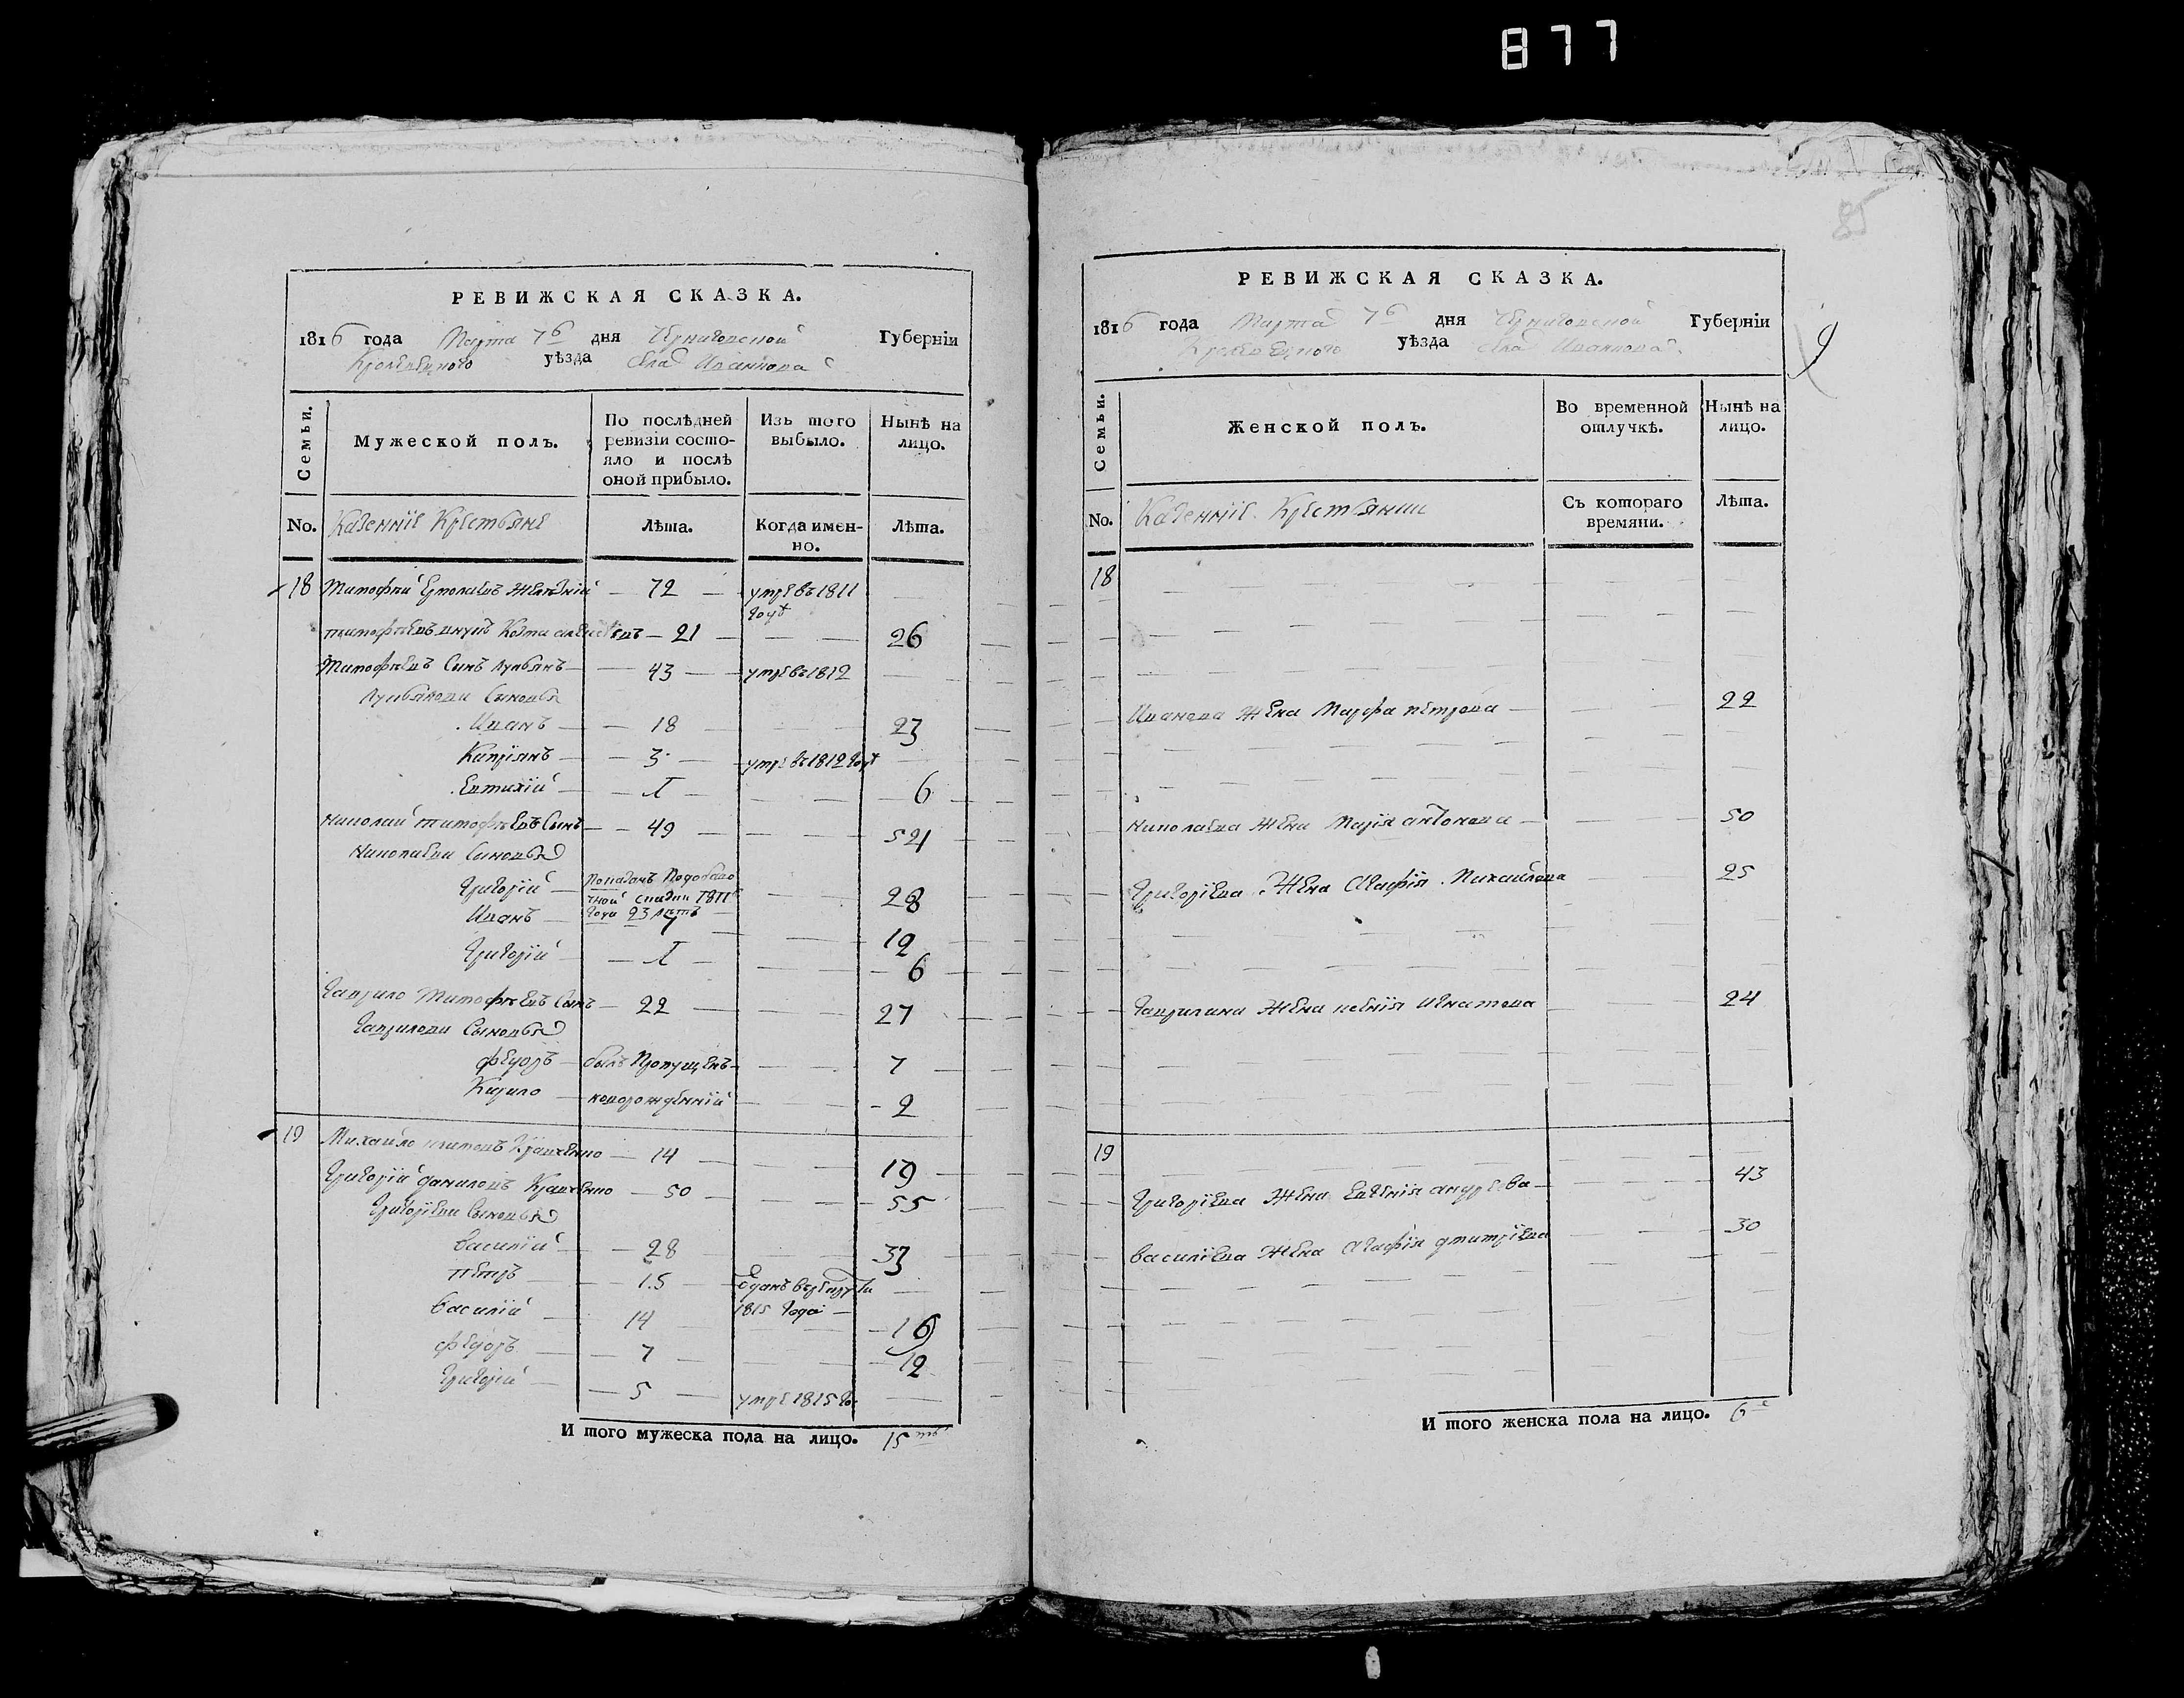 877
85
РЕВИЖСКАЯ СКАЗКА.
1816 года Марта 7го дня Черниговской Губерніи
Кролевецкого уѣзда села Иванкова
Семьи.
Мужеской полъ.
По послѣдней ревизіи состояло и послѣ оной прибыло.
Изъ того выбыло.
Нынѣ на лицо.
No. Казенніе Крестьяне
Лѣта.
Когда именно.
Лѣта.
18 Тимофей Ермолаевъ — 72 — умре въ 1811 году
Тимофѣевъ внукъ Козма — 21 — 26
Тимофѣевъ Сынъ Лукьянъ — 43 — умре въ 1812
Лукьянови Сыновья
Иванъ — 18 — 23
Капріянъ — 3 — умре въ 1812 году
Евтихій — 1 — 6
Николай Тимофѣевъ Сынъ — 49 — 54
Николаеви Сыновья
Григорій — Показанъ Подобавочной сказки 1811 года 23 лѣтъ — 28
Иванъ — 7 — 12
Григорій — 1 — 6
Гаврило Тимофѣевъ Сынъ — 22 — 27
Гаврилови Сыновья
Федоръ — былъ Пропущенъ — 7
Кирило — новорожденній — 2
19 Михайло Титовъ Кравченко — 14 — 19
Григорій Даниловъ Кравченко — 50 — 55
Григоріеви Сыновья
Василій — 28 — 33
Петръ — 15 — Отданъ въ рекруты 1815 Года
Василій — 14 — 19
Федоръ — 7 — 12
Григорій — 5 — умре 1815 го.
И того мужеска пола на лицо. 15ть
РЕВИЖСКАЯ СКАЗКА.
1816 года Марта 7го дня Черниговской Губерніи
Кролевецкого уѣзда села Иванкова
9
Семьи.
Женской полъ.
Во временной отлучкѣ.
Нынѣ на лицо.
No. Казенніе Крестьянки
Съ котораго времяни.
Лѣта.
18
Иванова Жена Марфа Петрова — 22
Николаева Жена Марія Антонова — 50
Григоріева Жена Агафія Михайлова — 25
Гаврилина Жена Ксенія Игнатова — 24
19
Григоріева Жена Евгенія Андреева — 43
Василіева Жена Агафія Дмитріева — 30
И того женска пола на лицо. 6